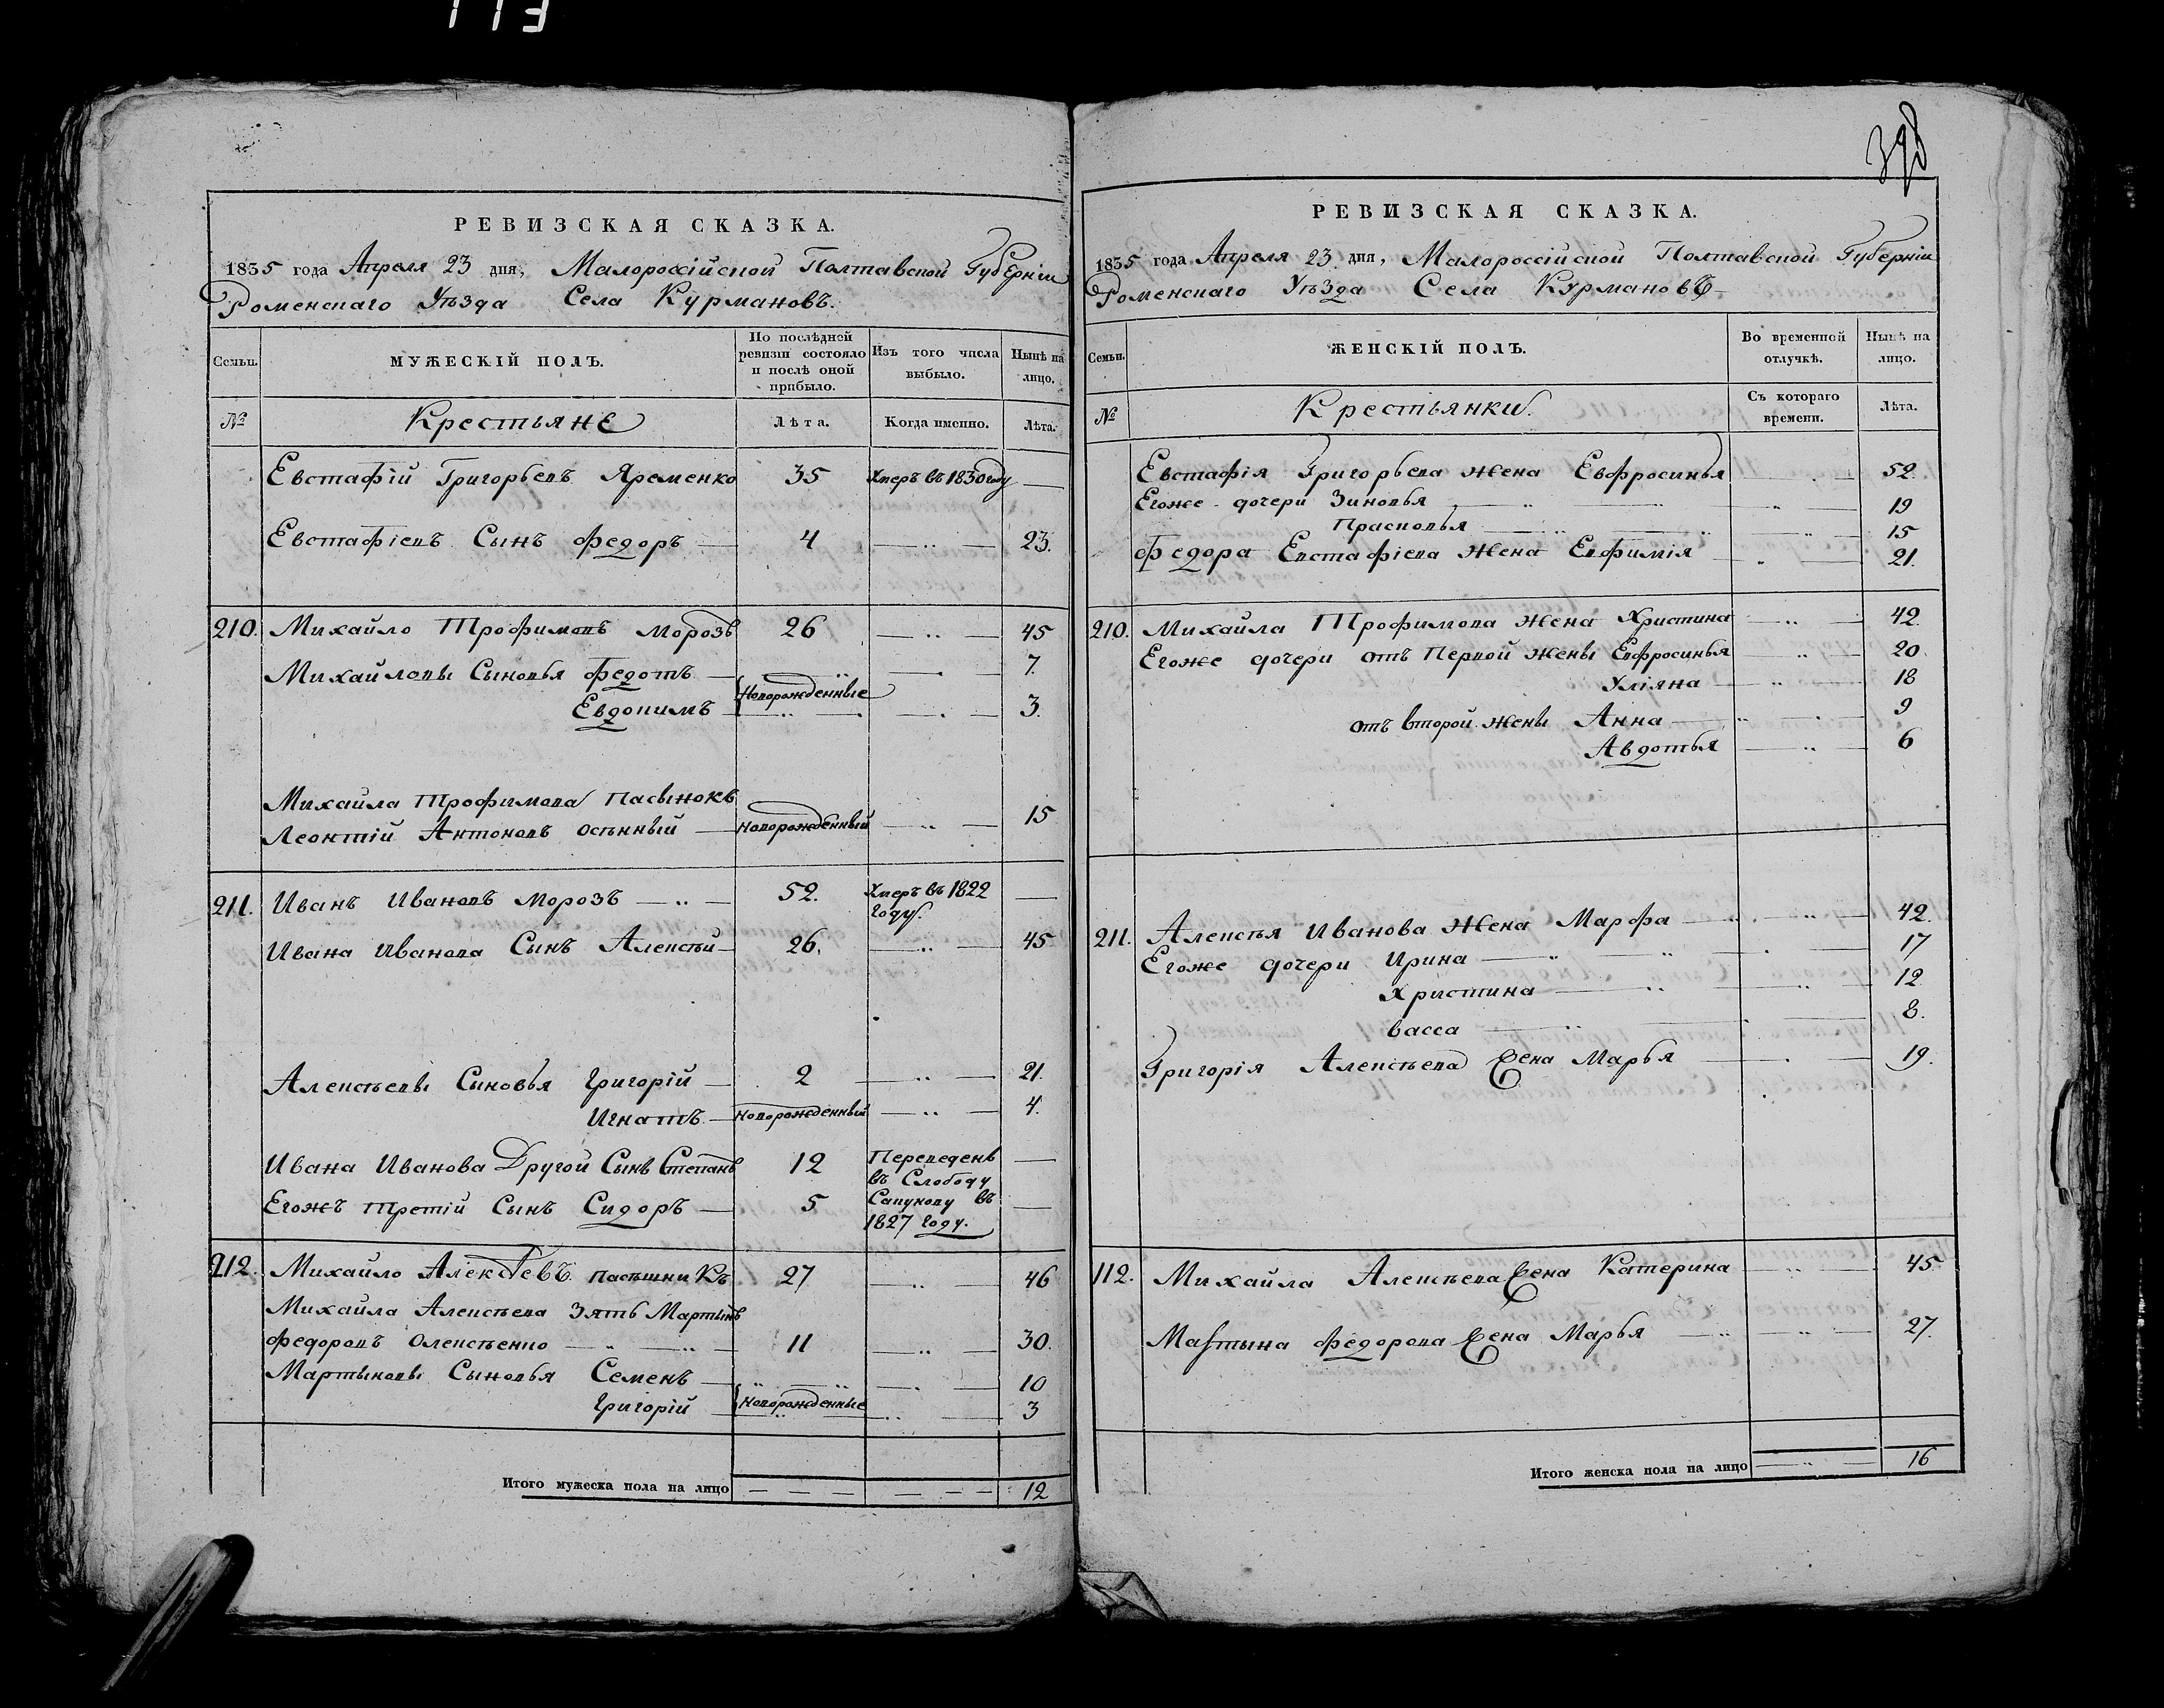 113
РЕВИЗСКАЯ СКАЗКА.
1835 года Апреля 23 дня, Малороссійской Полтавской Губерніи
Роменскаго Уѣзда Села Курмановъ.
Семьи.
МУЖЕСКІЙ ПОЛЪ.
По послѣдней ревизіи состояло и послѣ оной прибыло.
Изъ того числа выбыло.
Нынѣ на лицо.
№
Крестьяне
Лѣта.
Когда именно.
Лѣта.
Евстафій Григорьевъ Яременко 35 Умеръ въ 1830 году —
Евстафіевъ Сынъ Федоръ — 4 — „ — 23.
210. Михайло Трофимовъ Морозъ 26 — „ — 45
Михайловы Сыновья Федотъ — Новорожденные — 7.
Евдокимъ — „ — 3.
Михайла Трофимова Пасынокъ
Леонтій Антоновъ Осѣнный — новорожденный — „ — 15
211. Иванъ Ивановъ Морозъ — „ — 52. Умеръ въ 1822 году. —
Ивана Иванова Сынъ Алексѣй — 26. — „ — 45
Алексѣевы Сыновья Григорій — 2 — „ — 21.
Игнатъ — новорожденный — „ — 4.
Ивана Иванова Другой Сынъ Степанъ 12 Переведенъ —
въ Слободу
Егожъ третій Сынъ Сидоръ — 5 Сапунову въ —
1827 году.
212. Михайло Алексѣевъ Пасѣшникъ 27 — „ — 46
Михайла Алексѣева Зять Мартынъ
Федоровъ Олексѣенко — „ — 11 — „ — 30.
Мартыновы Сыновья Семенъ — Новорожденные — 10
Григорій — „ — 3
Итого мужеска пола на лицо — — — — — — 12
398
РЕВИЗСКАЯ СКАЗКА.
1835 года Апреля 23 дня, Малороссійской Полтавской Губерніи
Роменскаго Уѣзда Села Курмановъ
Семьи.
ЖЕНСКІЙ ПОЛЪ.
Во временной отлучкѣ.
Нынѣ на лицо.
№
Крестьянки.
Съ котораго времени.
Лѣта.
Евстафія Григорьева жена Евфросинья — 52.
Егоже дочери Зиновья — „ — 19
Прасковья — „ — 15
Федора Евстафіева жена Евфимія — „ — 21.
210. Михайла Трофимова жена Христина — „ — 42.
Егоже дочери отъ Первой жены Евфросинья — „ — 20.
Уліяна — „ — 18
отъ второй жены Анна — „ — 9
Авдотья — „ — 6
211. Алексѣя Иванова жена Марфа — „ — 42.
Егоже дочери Ирина — „ — 17
Христина — „ — 12
Васса — „ — 8.
Григорія Алексѣева жена Марья — 19.
112. Михайла Алексѣева жена Катерина — „ — 45
Мартына Федорова жена Марья — „ — 27.
Итого женска пола на лицо — „ — 16